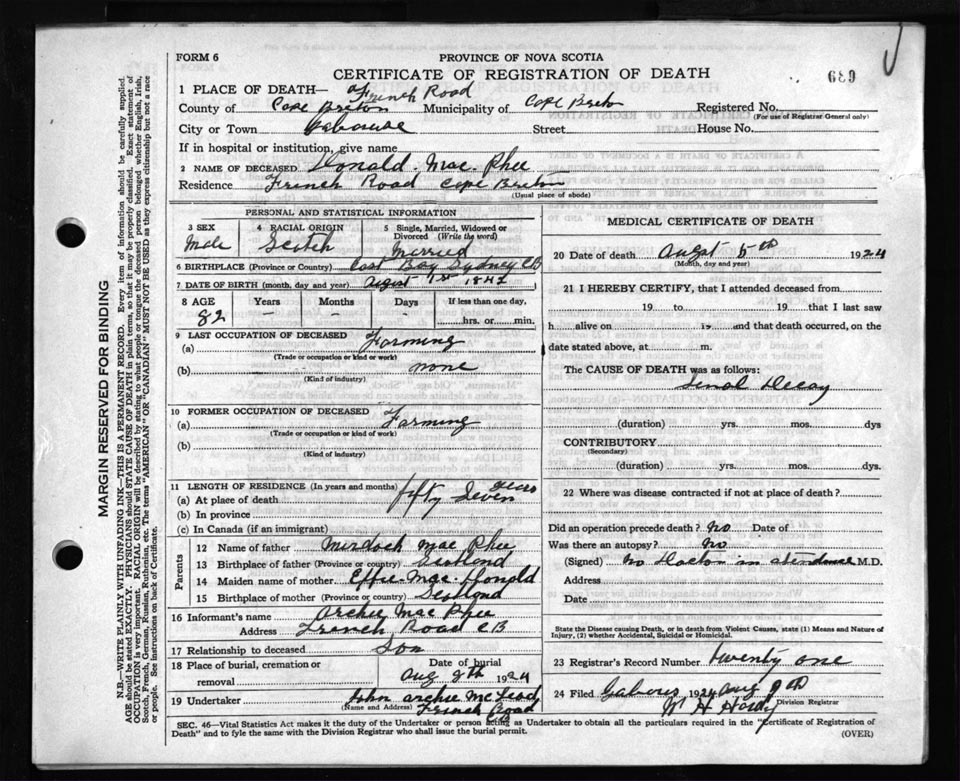 FORM 6
PROVINCE OF NOVA SCOTIA
CERTIFICATE OF REGISTRATION OF DEATH
689
1 PLACE OF DEATH— French Road
County of Cape Breton Municipality of Cape Breton Registered No.
(For use of Registrar General only)
City or Town Gabouse Street House No.
If in hospital or institution, give name
2 NAME OF DECEASED Donald. Mac. Phee
Residence French Road Cape Breton
(Usual place of abode)
PERSONAL AND STATISTICAL INFORMATION
3 SEX
Male
4 RACIAL ORIGIN
Scotch
5 Single, Married, Widowed or
Divorced (Write the word)
Married
6 BIRTHPLACE (Province or Country) East Bay Sydney CB
7 DATE OF BIRTH (month, day and year) August 1st 1842
8 AGE Years Months Days If less than one day,
82 – – – hrs. or min.
9 LAST OCCUPATION OF DECEASED
(a) Farming
(Trade or occupation or kind of work)
(b) none
(Kind of industry)
10 FORMER OCCUPATION OF DECEASED
(a) Farming
(Trade or occupation or kind of work)
(b)
(Kind of industry)
11 LENGTH OF RESIDENCE (In years and months)
(a) At place of death fifty Seven years
(b) In province
(c) In Canada (if an immigrant)
Parents
12 Name of father Mirdock Mac Phee
13 Birthplace of father (Province or country) Scotlend
14 Maiden name of mother Effie Mac. Donald
15 Birthplace of mother (Province or country) Scotlond
16 Informant's name Archie Mac Phee
Address French Road CB
17 Relationship to deceased Son
18 Place of burial, cremation or
removal
Date of burial
Aug 9th 1924
19 Undertaker John Archie McLeod
(Name and Address) French Road
CB
MEDICAL CERTIFICATE OF DEATH
20 Date of death Augst 5th 1924
(Month, day and year)
21 I HEREBY CERTIFY, that I attended deceased from
19 to 19 that I last saw
h alive on 19 and that death occurred, on the
date stated above, at m.
The CAUSE OF DEATH was as follows:
Senal Decay
(duration) yrs. mos. dys
CONTRIBUTORY
(Secondary)
(duration) yrs. mos. dys.
22 Where was disease contracted if not at place of death?
Did an operation precede death? No Date of
Was there an autopsy? No
(Signed) No Docton in atendence M.D.
Address
Date
State the Disease causing Death, or in death from Violent Causes, state (1) Means and Nature of
Injury, (2) whether Accidental, Suicidal or Homicidal.
23 Registrar's Record Number twenty one
24 Filed Gaborus 1924 Aug 9th
W H Hardy Division Registrar
SEC. 46—Vital Statistics Act makes it the duty of the Undertaker or person acting as Undertaker to obtain all the particulars required in the "Certificate of Registration of
Death" and to fyle the same with the Division Registrar who shall issue the burial permit.
(OVER)
MARGIN RESERVED FOR BINDING
N.B.—WRITE PLAINLY WITH UNFADING INK—THIS IS A PERMANENT RECORD. Every item of information should be carefully supplied.
AGE should be stated EXACTLY. PHYSICIANS should STATE CAUSE OF DEATH in plain terms, so that it may be properly classified. Exact statement of
OCCUPATION is very important. RACIAL ORIGIN will be described by stating to what people or tongue the deceased person belonged whether English, Irish,
Scotch, French, German, Russian, Ruthenian, etc. The terms "AMERICAN" OR "CANADIAN" MUST NOT BE USED as they express citizenship but not a race
or people. See instructions on back of Certificate.